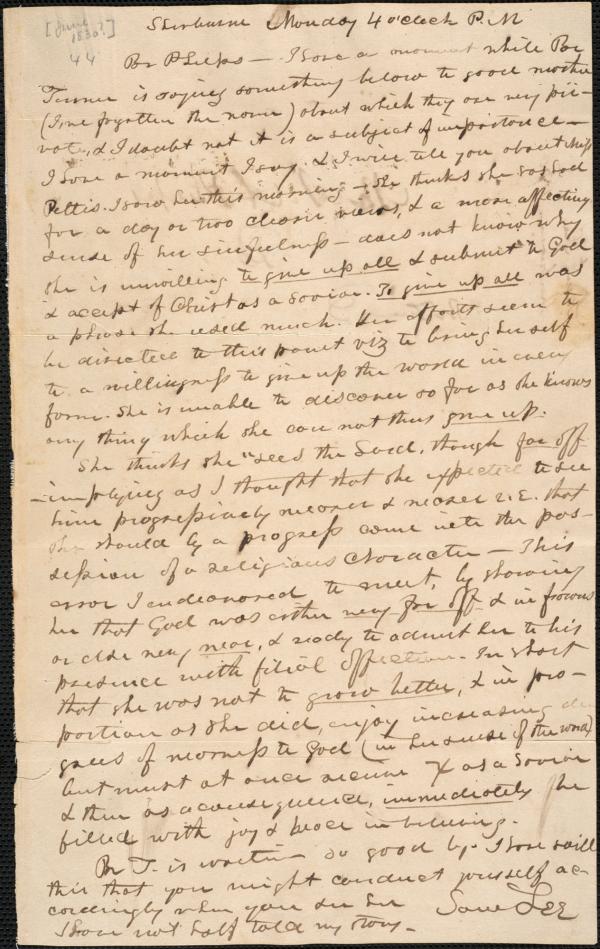 [June 1830?]
44
Sherburne Monday 4 o'clock P.M
Br Phelps — I have a moment while Br
Turner is saying something below to good mother
(I've forgotten the name) about which they are very pri-
vate, & I doubt not it is a subject of importance —
I have a moment I say. & I will tell you about Miss
Pettis. I saw her this morning — She thinks she has had
for a day or two clearer views, & a more affecting
sense of her sinfulness — does not know why
she is unwilling to give up all & submit to God
& accept of Christ as a Savior. To give up all was
a phrase she used much. Her efforts seem to
be directed to this point viz to bring herself
to a willingness to give up the world in every
form. She is unable to discover so far as she knows
any thing which she can not thus give up.
She thinks she "sees the Lord, though far off
— implying as I thought that she expected to see
him progressively nearer & nearer i.e. that
she should by a progress come into the pos-
session of a religious character — This
error I endeavored to meet, by showing
her that God was either very far off & in frowns
or else very near, & ready to admit her to his
presence with filial affection. In short
that she was not to grow better, & in pro-
portion as she did, enjoy increasing de
grees of nearness to God (in her sense of the word)
but must at once receive X as a Savior
& then as a consequence, immediately be
filled with joy & peace in believing.
Br T. is waiting so good by. I have said
this that you might conduct yourself ac-
cordingly when you see her
I have not half told my story — Sam Lee